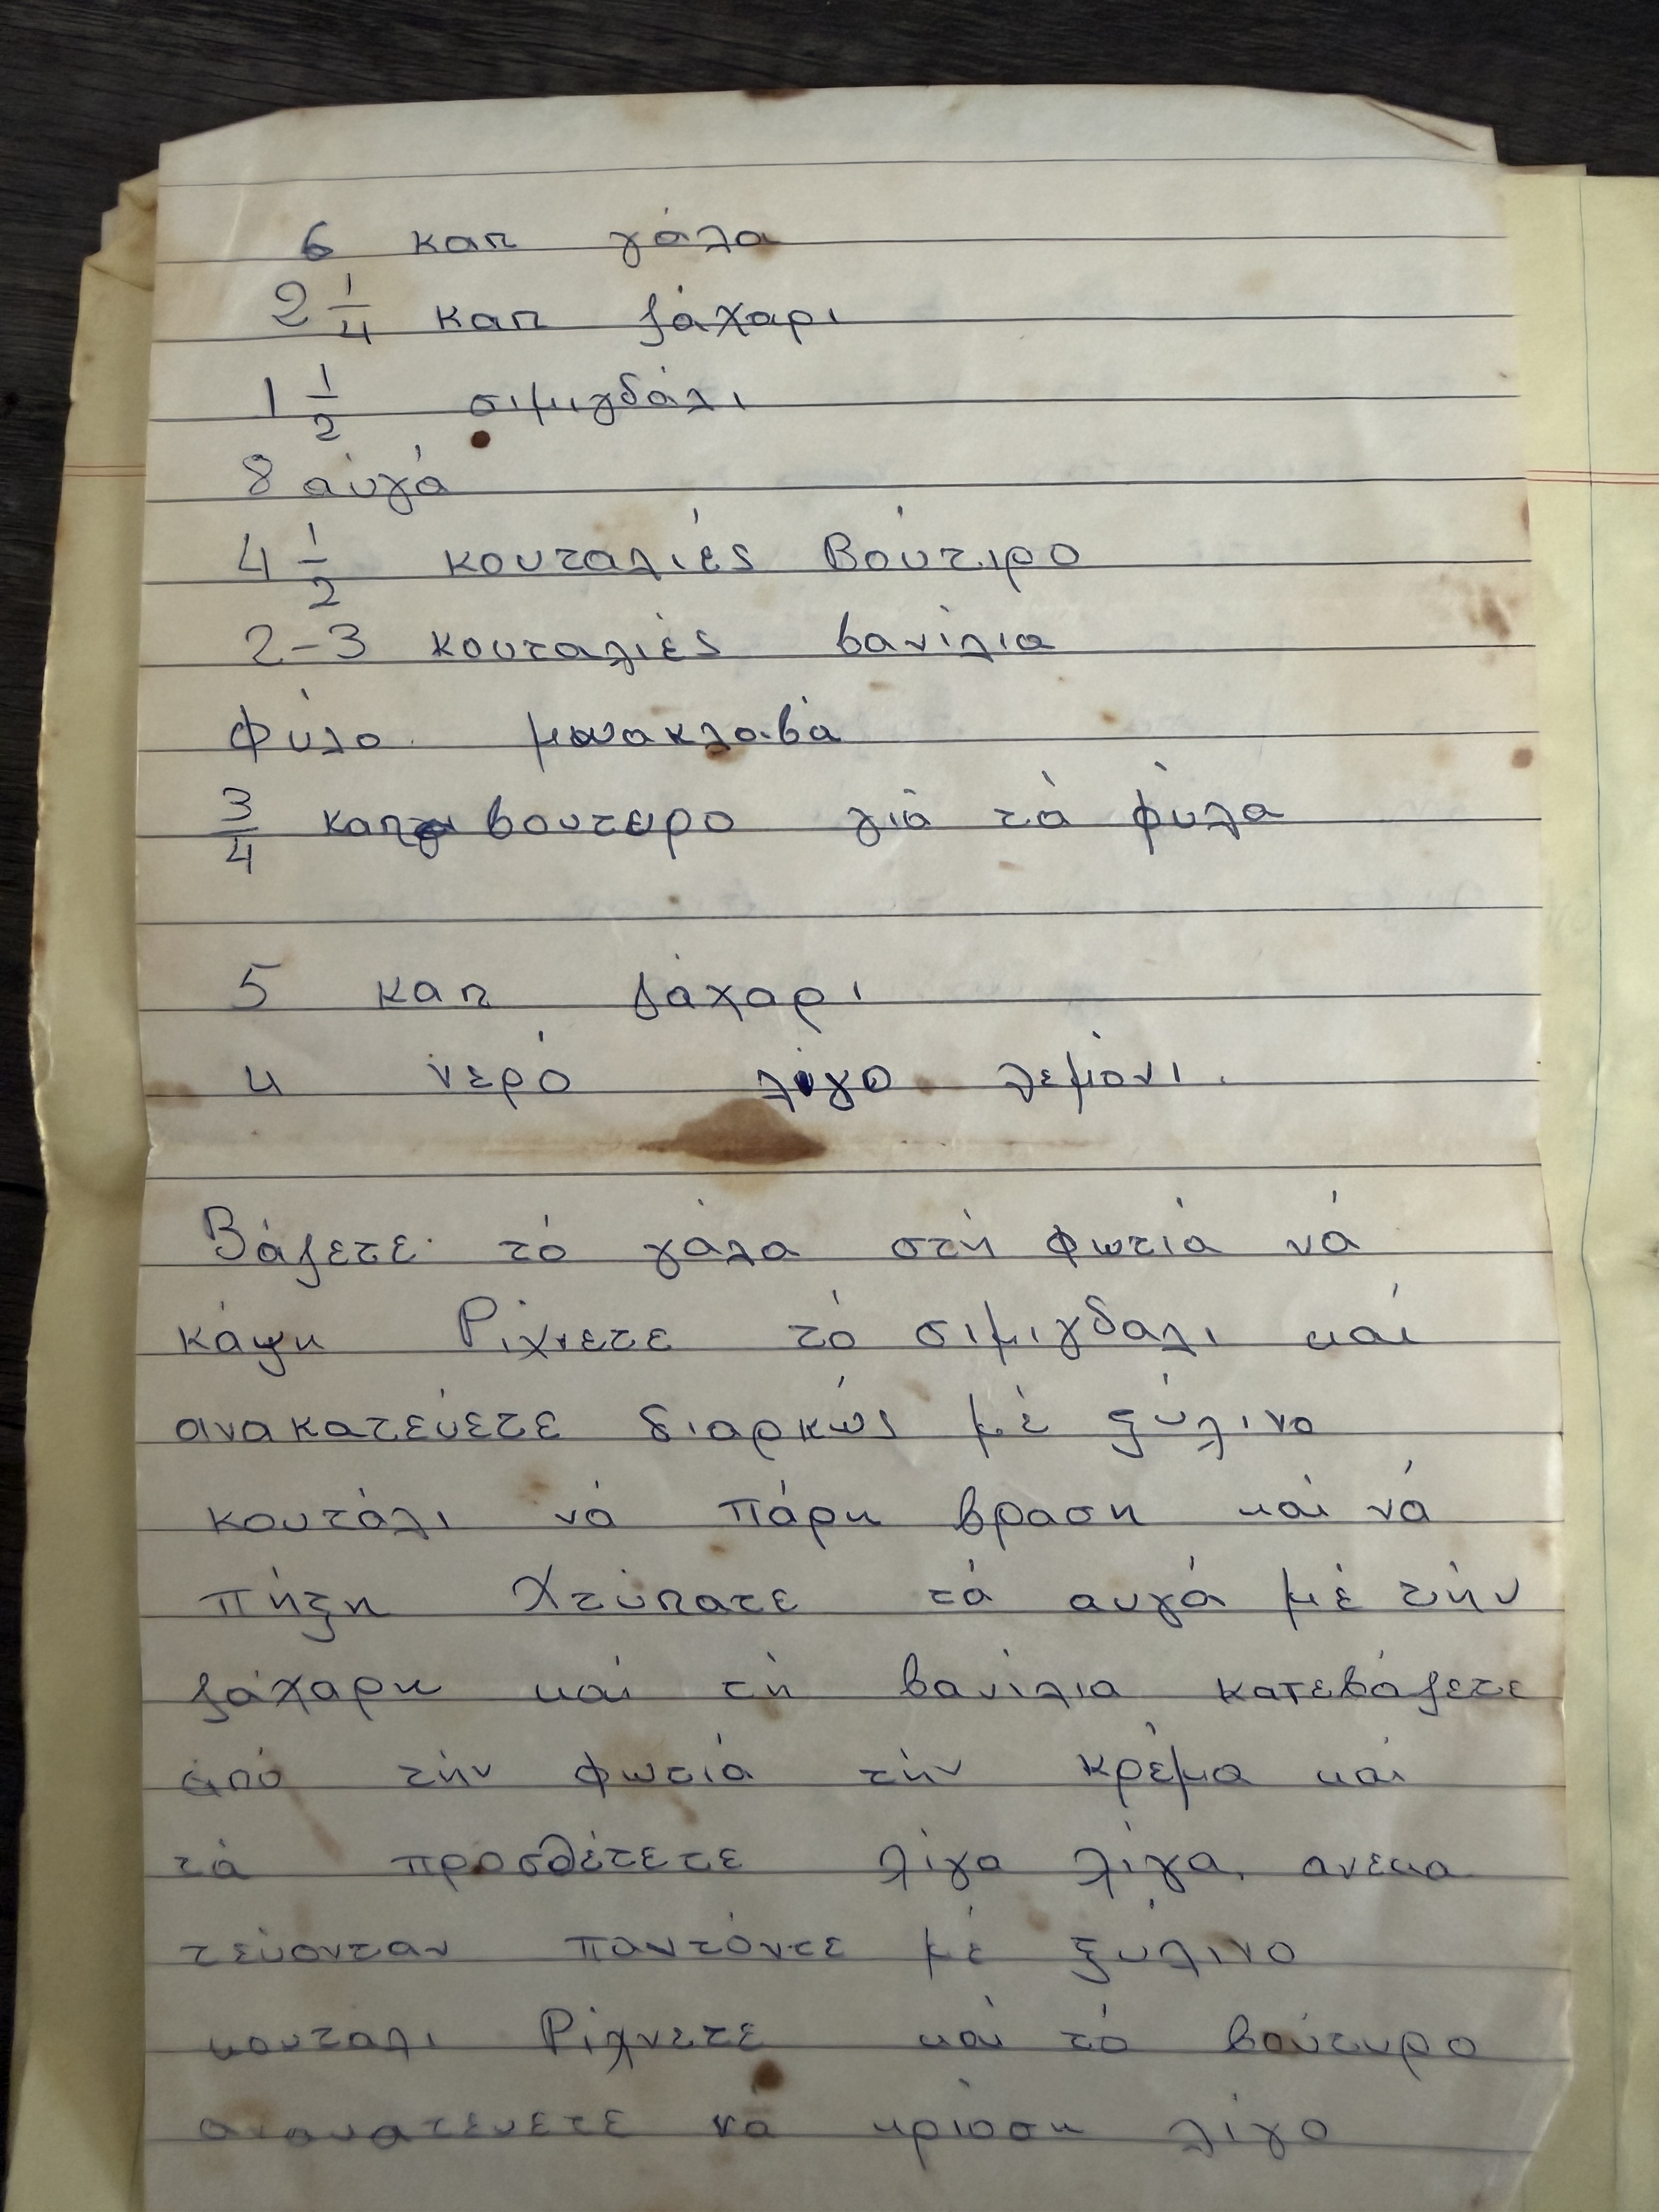 6 καπ γάλα
2 1/4 καπ ζάχαρι
1 1/2 σιμιγδάλι
8 αὐγά
4 1/2 κουταλιές Βούτιρο
2-3 κουταλιές βανίλια
Φύλο μπακλαβά
3/4 καπ βουτυρο γιά τά φύλα
5 καπ ζάχαρι
4 νερό λίγο λεμόνι.
Βάζετε τό γάλα στή φωτιά νά
κάψη Ρίχνετε τό σιμιγδαλι καί
ανακατεύετε διαρκώς μέ ξύλινο
κουτάλι νά πάρη βραση καί νά
πήξη Χτύπατε τά αυγά μέ τήν
ζάχαρη καί τή βανίλια κατεβάζετε
από τήν φωτιά τήν κρέμα καί
τά προσθέτετε λίγα λίγα, ανεκα
τεύονταν παντόντε μέ ξυλινο
κουταλι Ρίχνετε καί τό βούτυρο
ανακατευετε νά κριόση λίγο